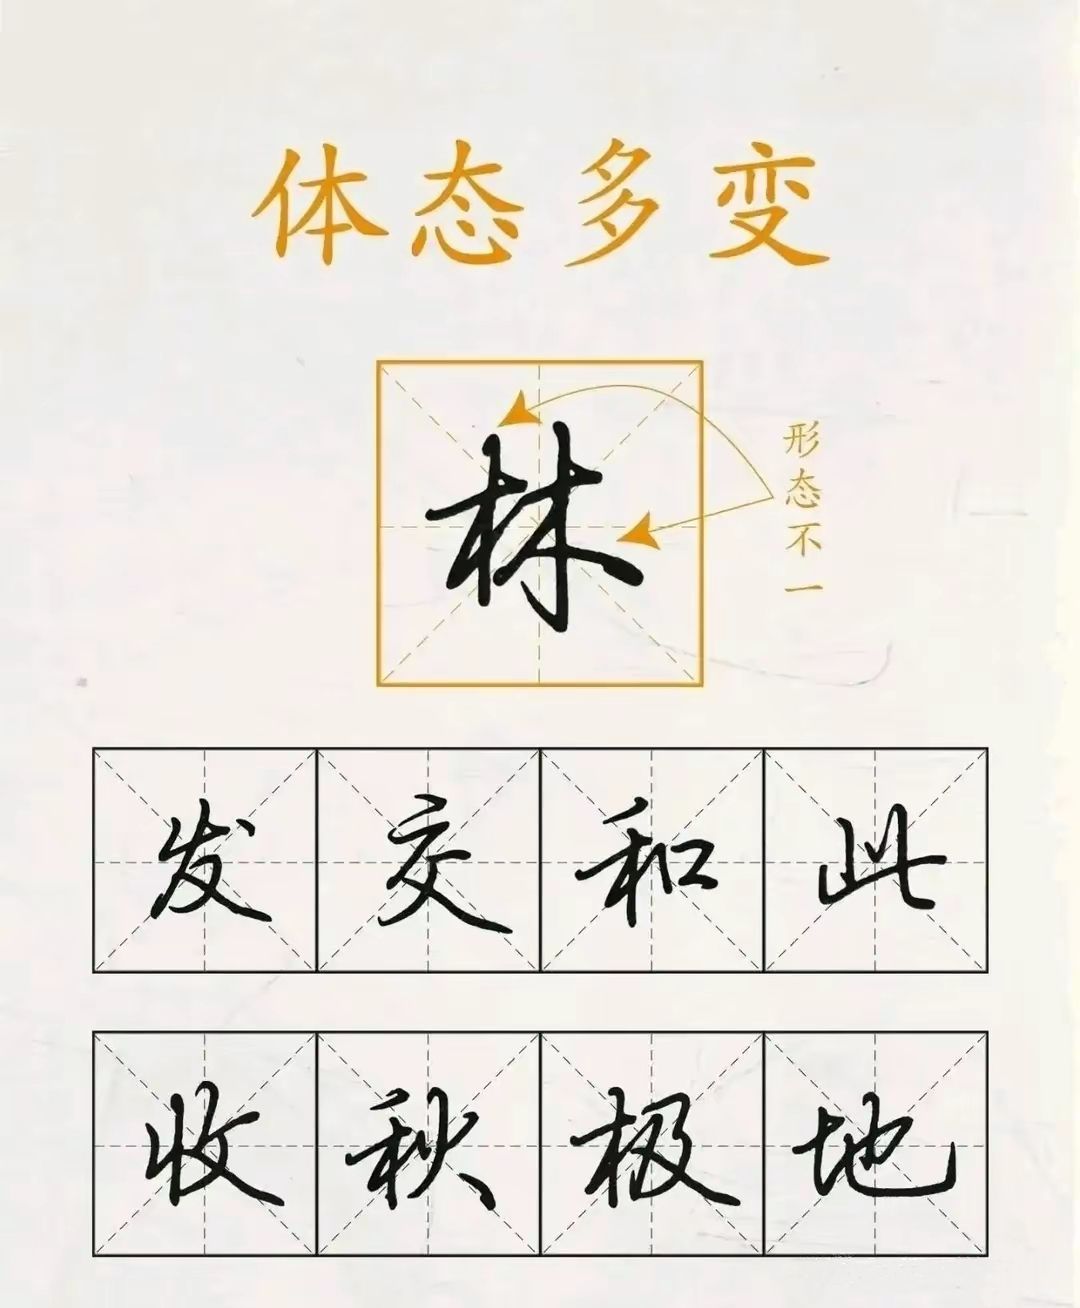 体态多变
林
形态不一
发交和此
收秋极地